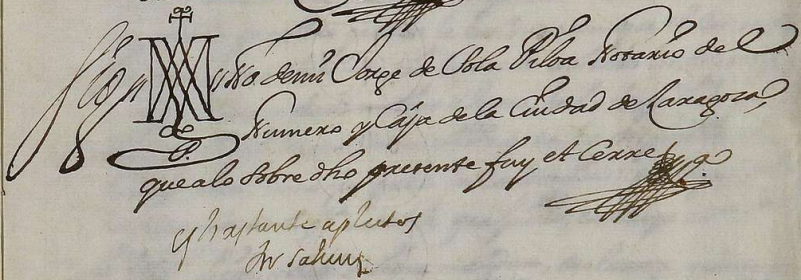 Sig no de mi Jorge de Sola Piloa Notario del
Numero y Caja de la Ciudad de Zaragoza,
que a lo sobre dho presente fuy et Cerre
y bastante a pleitos